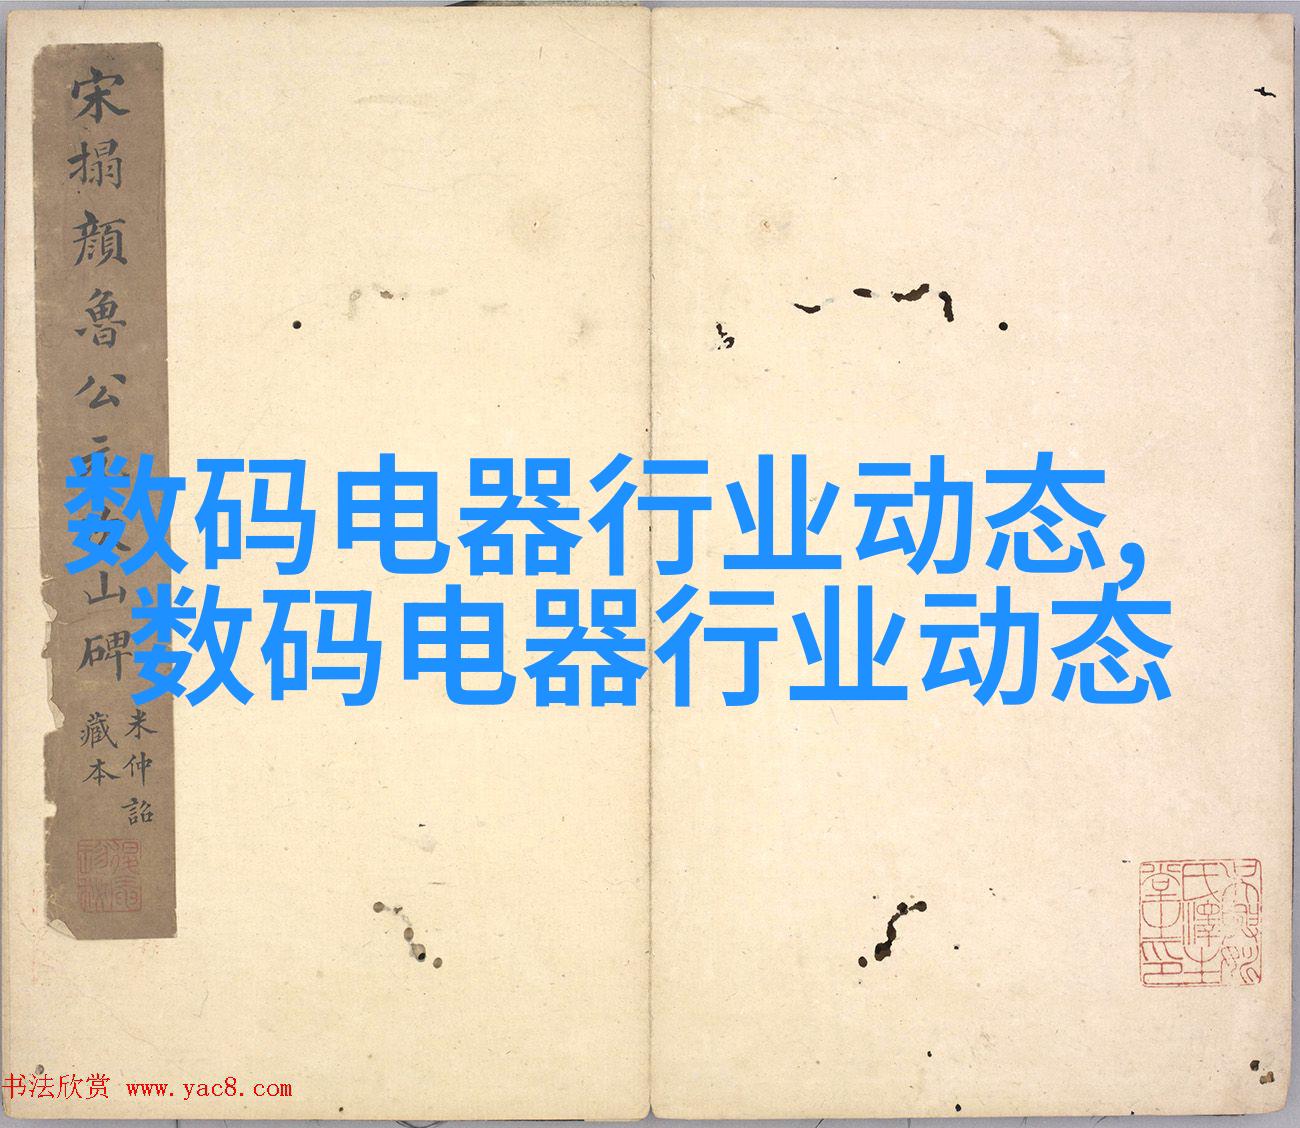 宋搨顔魯公
山碑
米仲詔
藏本
数码电器行业动态,
数码电器行业动态
书法欣赏 www.yac8.com